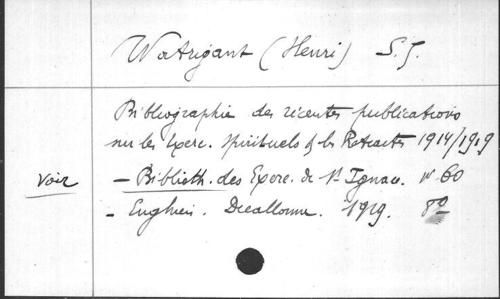 Watrigant (Henri) S. J.
Bibliographie des récentes publications
sur les Exerc. Spirituels & les Retraites 1914/1919
Voir — Biblioth. des Exerc. de St Ignace. n° 60
- Enghien. Decallonne. 1919. 8°